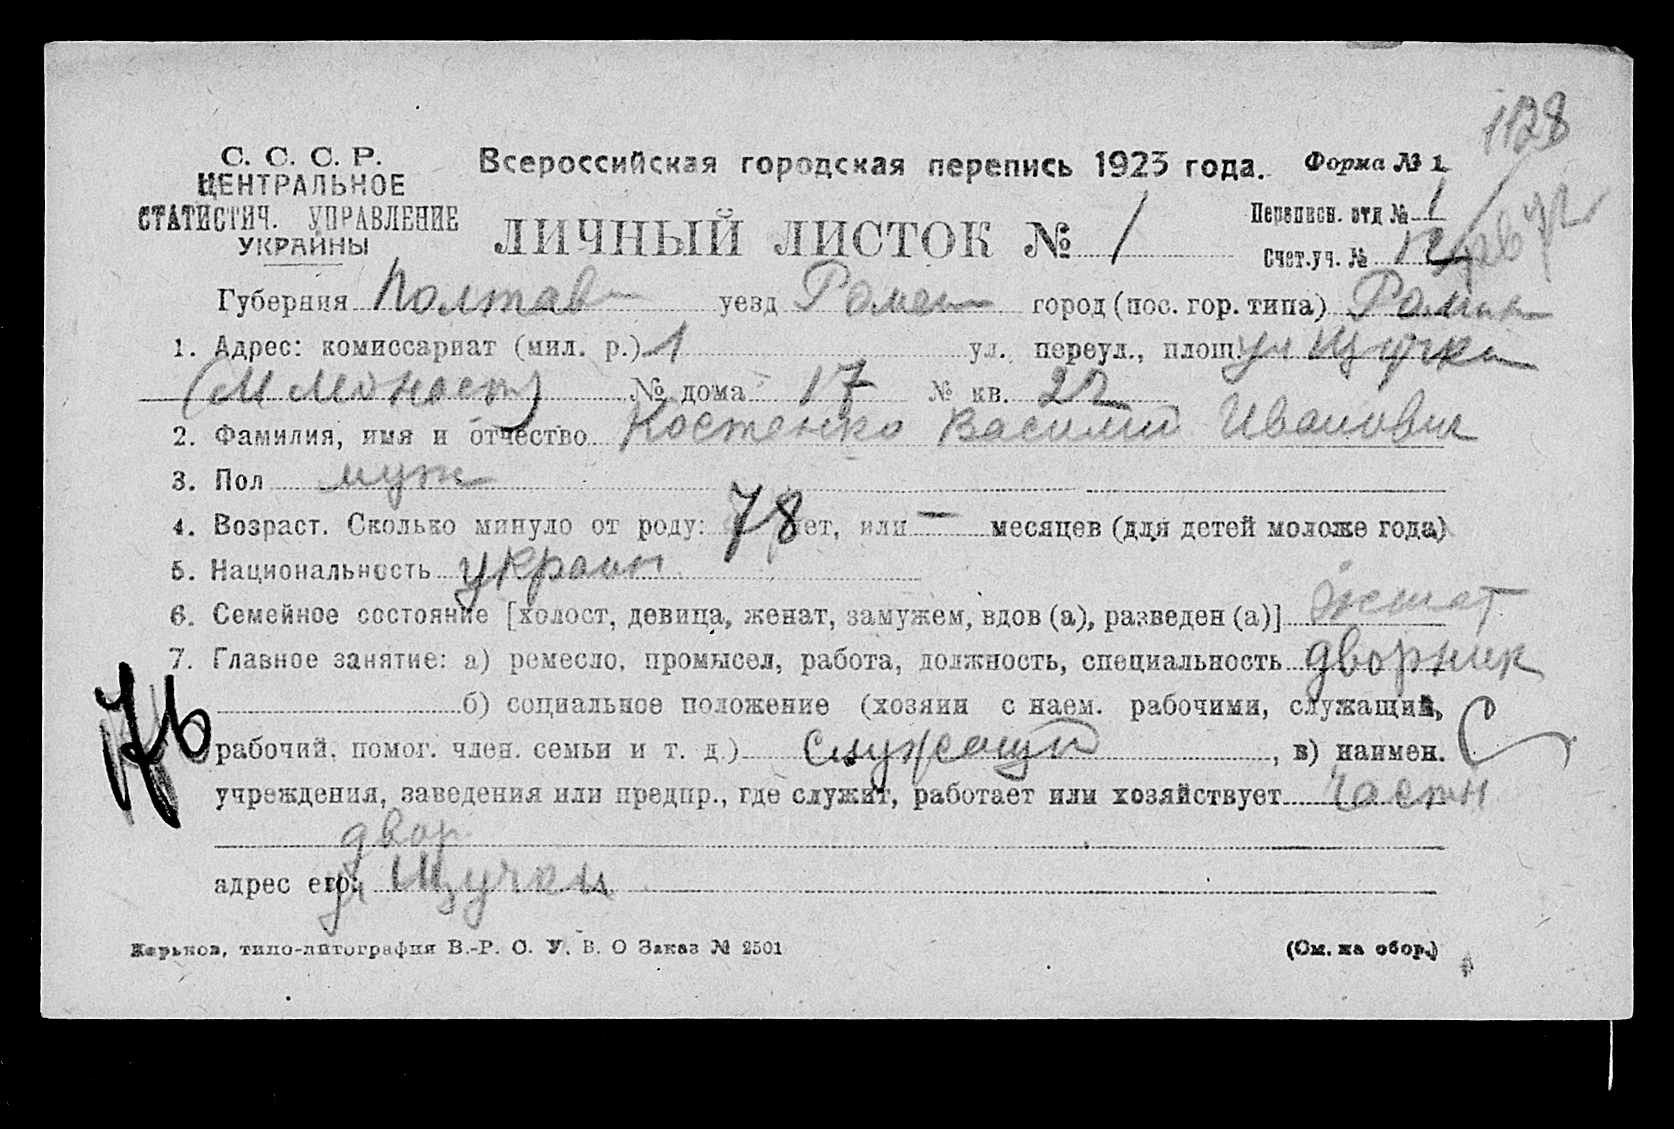 1128
С. С. С. Р.
ЦЕНТРАЛЬНОЕ
СТАТИСТИЧ. УПРАВЛЕНИЕ
УКРАЙНЫ
Всероссийская городская перепись 1923 года. Форма № 1
ЛИЧНЫЙ ЛИСТОК № 1
Переписн. отд № 1
Счет.уч. № 12
Губерния Полтав уезд Ромен город (пос. гор. типа) Ромны
1. Адрес: комиссариат (мил. р.) 1 ул., переул., площ. ул Щучки
№ дома 17 № кв. 22
2. Фамилия, имя и отчество Костенко Василий Иванович
3. Пол муж
4. Возраст. Сколько минуло от роду: 78 лет, или — месяцев (для детей моложе года)
5. Национальность украин
6. Семейное состояние [холост, девица, женат, замужем, вдов (а), разведен (а)] женат
7. Главное занятие: а) ремесло, промысел, работа, должность, специальность дворник
б) социальное положение (хозяин с наем. рабочими, служащий,
рабочий, помог. член. семьи и т. д.) Служащий, в) наимен. С
учреждения, заведения или предпр., где служит, работает или хозяйствует частн
двор
адрес его: ул Щучки
76
Харьков, типо-литография В.-Р. С. У. В. О Заказ № 2501 (См. на обор.)